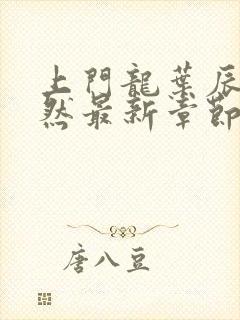 上門龍葉辰
然最新章節
唐八豆